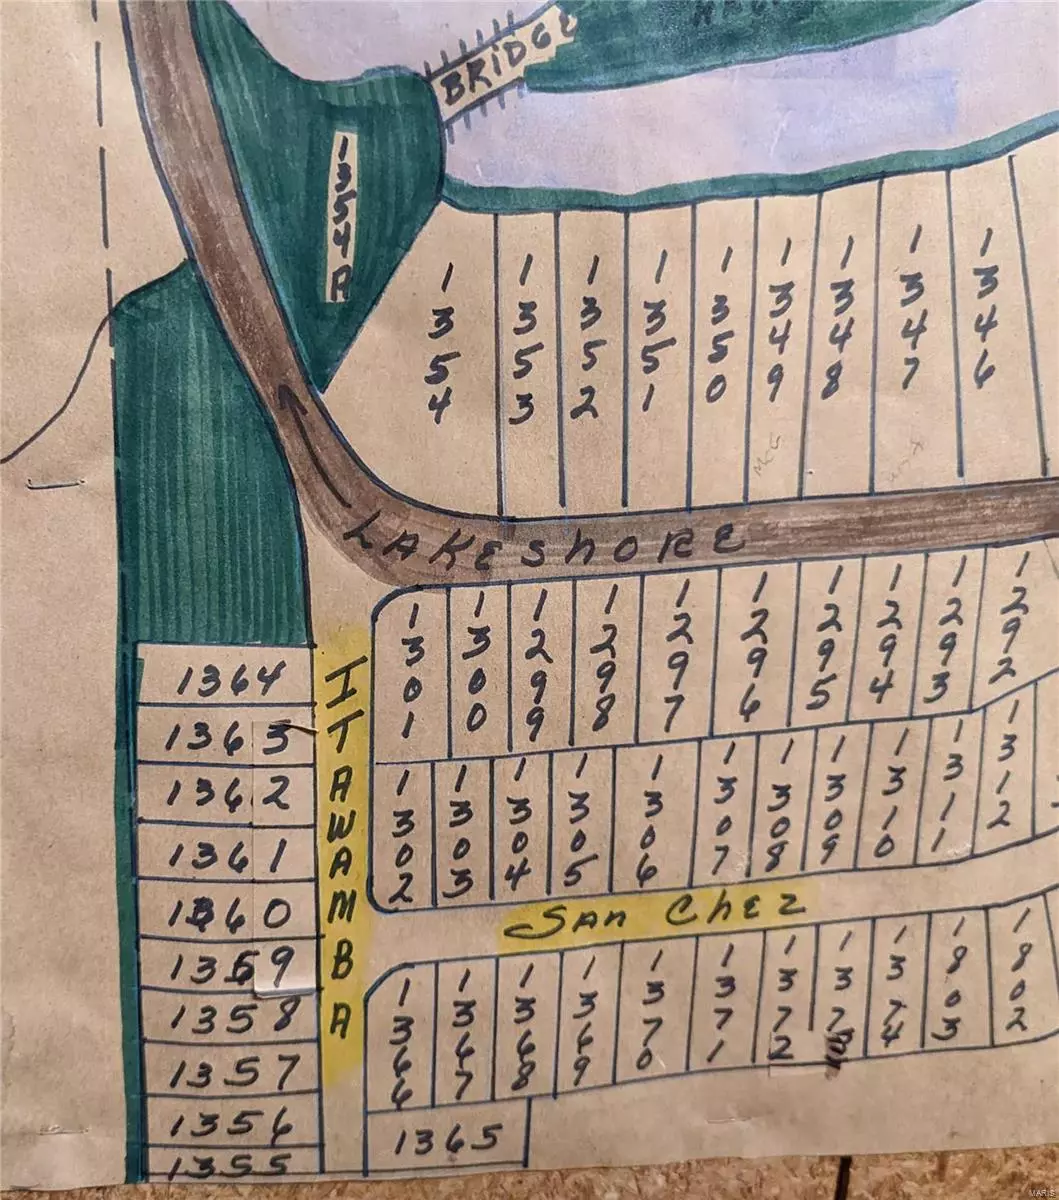 BRIDGE
1354A
1354
1353
1352
1351
1350
1349
1348
1347
1346
LAKESHORE
1301
1300
1299
1298
1297
1296
1295
1294
1293
1292
1364
1363
1362
1361
1360
1359
1358
1357
1356
1355
ITAWAMBA
1302
1303
1304
1305
1306
1307
1308
1309
1310
1311
1312
SAN CHEZ
1366
1367
1368
1369
1370
1371
1372
1373
1374
1803
1802
1365
MARIS